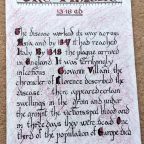 THE PLAGUE
13 18 AD
The disease worked its way across
Asia and by 1347 it had reached
Italy. By 1348 the plague arrived
in England. It was terrifyingly
infectious. Giovanni Villani the
chronicler of Florence described the
disease there appeared certain
swellings in the groin and under
the armpit the victims spat blood and
in three days they were dead. One
third of the population of Europe died